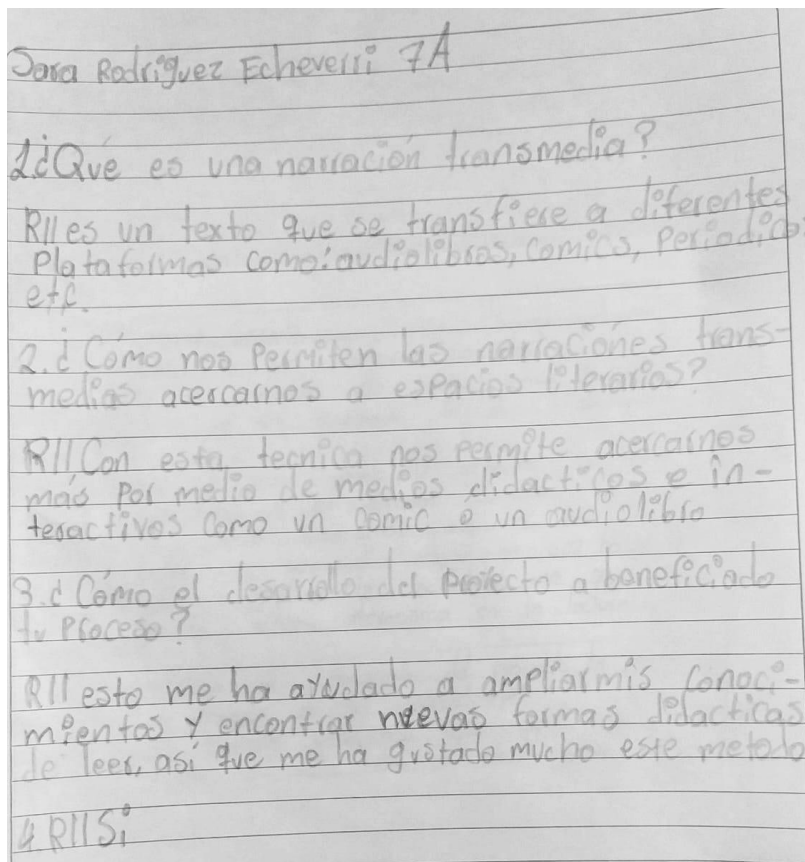 Sara Rodriguez Echeverri 7A
1¿Que es una narración transmedia?
R// es un texto que se transfiere a diferentes
Plataformas como: audiolibros, comics, Periodico
etc.
2. ¿Cómo nos Permiten las narraciones trans-
medias acercarnos a espacios literarios?
R// Con esta tecnica nos permite acercarnos
más Por medio de medios didacticos e in-
teractivos como un comic o un audiolibro
3. ¿Cómo el desarrollo del proiecto a baneficiado
tu Proceso?
R// esto me ha ayudado a ampliar mis conoci-
mientos y encontrar nuevas formas didacticas
de leer, así que me ha gustado mucho este metodo
4 R// Si